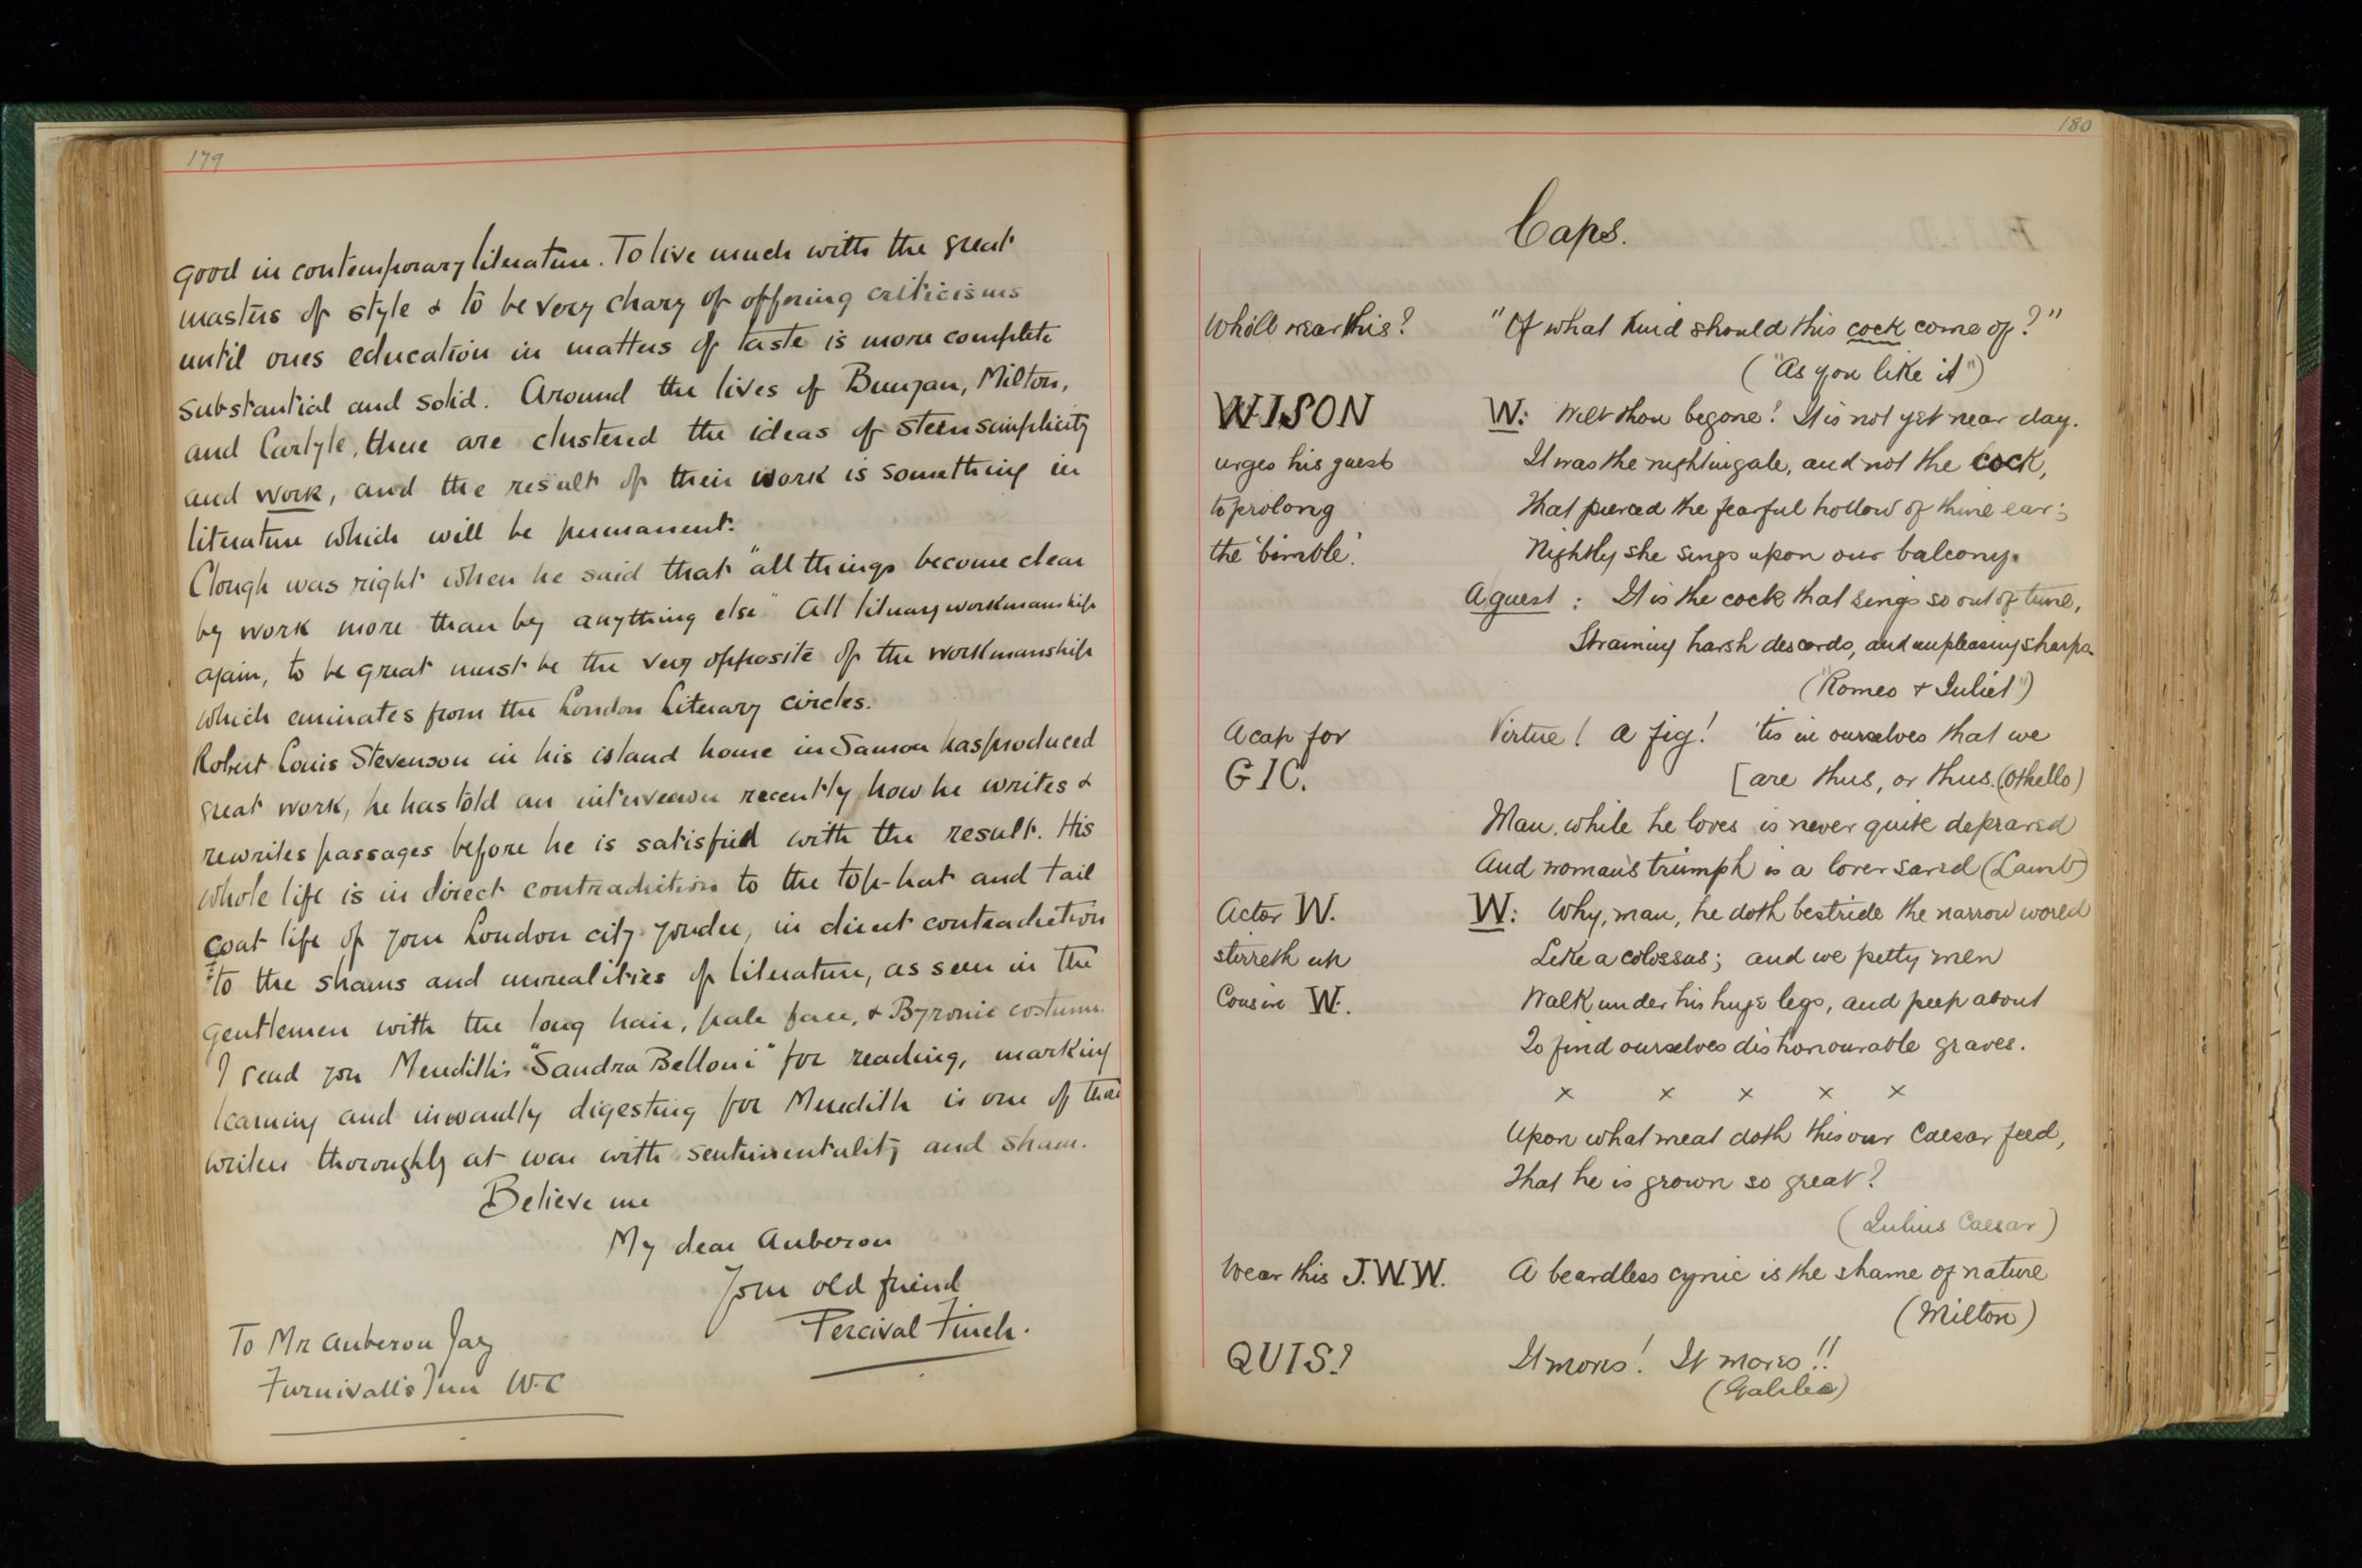 179
good in contemporary literature. To live much with the great
masters of style & to be very chary of offering criticisms
until ones education in matters of taste is more complete
substantial and solid. Around the lives of Bunyan, Milton,
and Carlyle, there are clustered the ideas of stern simplicity
and work, and the result of their work is something in
literature which will be permanent.
Clough was right when he said that "all things become clear
by work more than by anything else" All literary workmanship
again, to be great must be the very opposite of the workmanship
which eminates from the London Literary circles.
Robert Louis Stevenson in his island home in Samoa has produced
great work, he has told an interviewer recently how he writes &
rewrites passages before he is satisfied with the result. His
whole life is in direct contradiction to the top-hat and tail
coat life of your London city yonder, in direct contradiction
to the shams and unrealities of literature, as seen in the
gentlemen with the long hair, pale face, & Byronic costume.
I send you Meredith's "Sandra Belloni" for reading, marking
learning and inwardly digesting for Meredith is one of those
writers thoroughly at war with sentimentality and sham.
Believe me
My dear Auberon
Your old friend
Percival Finch.
To Mr Auberon Jay
Furnivall's Inn W.C
180
Caps.
Who'll wear this? "Of what kind should this cock come of?"
("As you like it")
WISON W: Wilt thou begone? It is not yet near day.
urges his guest It was the nightingale, and not the cock,
to prolong That pierced the fearful hollow of thine ear;
the 'bimble'. Nightly she sings upon our balcony.
A guest: It is the cock that sings so out of tune,
Straining harsh descords, and unpleasing sharps.
("Romeo & Juliet")
A cap for Virtue! A fig! 'tis in ourselves that we
GIC. [are thus, or thus. (Othello)
Man, while he loves is never quite depraved
And woman's triumph is a lover saved (Lamb)
Actor W. W: Why, man, he doth bestride the narrow world
stirreth up Like a colossus; and we petty men
Cousin W. Walk under his huge legs, and peep about
To find ourselves dishonourable graves.
x x x x x
Upon what meat doth this our Caesar feed,
That he is grown so great?
(Julius Caesar)
Wear this J.W.W. A beardless cynic is the shame of nature
(Milton)
QUIS? It moves! It moves!!
(Galileo)